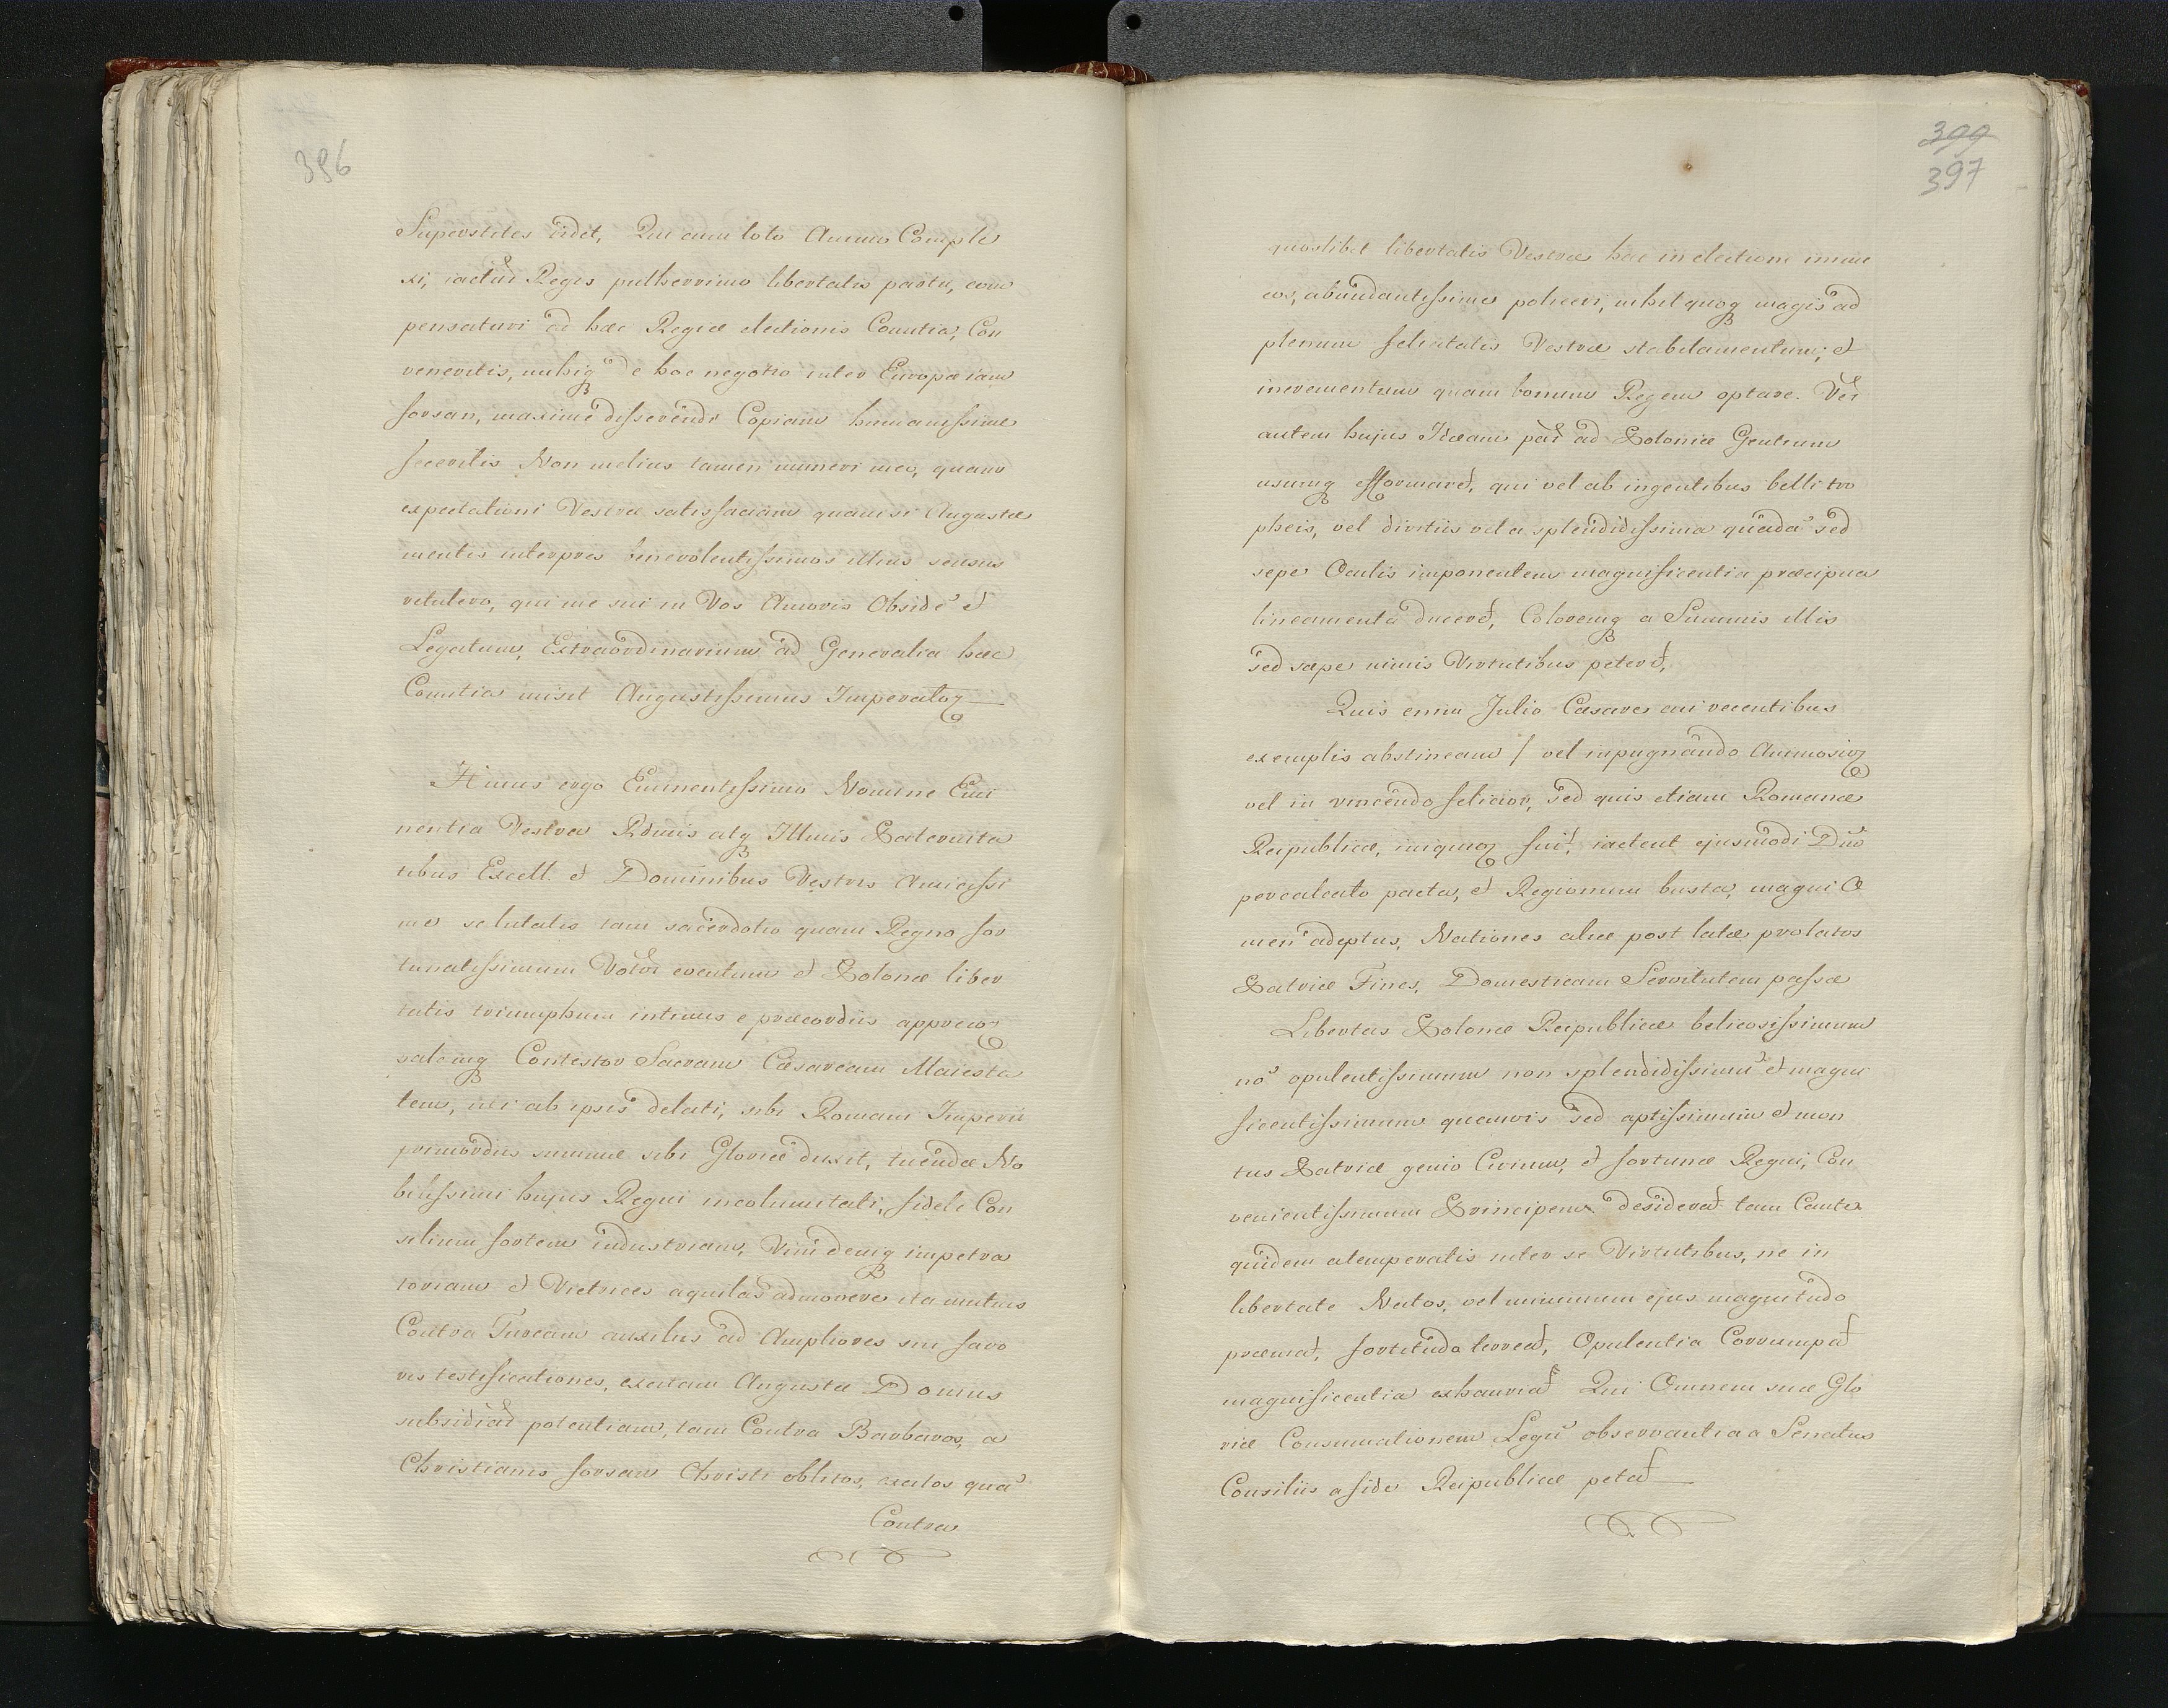 396
Superstites videt, Qui cum toto Animo Comple
xi, iactur Regis pulherrimo libertatis partu, com
pensaturi ad hæc Regiæ electionis Comitia, Con
veneritis, mihiq de hoc negotio inter Europæ iam
forsan, maxime disserendi Copiam humanissime
feceritis Non melius tamen muneri meo, quam
expectationi Vestræ satisfaciam quam si Augustæ
mentis interpres benevolentissimos illius sensus
retulero, qui me sui in Vos Amoris Obside et
Legatum, Extraordinarium ad Generalia hæc
Comitia misit Augustissimus Imperator
Hinus ergo Eminentissimo Nomine Emi
nentia Vestra Rdmis atq Illmis Paternita
tibus Excell. et Dominibus Vestris Amicissi
me salutatis tam sacerdotio quam Regno for
tunatissimum Votor eventum et Polonæ liber
tatis triumphum intimis e præcordiis apprecor
salemq Contestor Sacram Cæsaream Maiesta
tem, uti ab ipsis delati, sibi Romani Imperii
primordiis summæ sibi Gloriæ duxit, tuendæ No
bilissimi hujus Regni incolumitati, fidele Con
silium fortem industriam, Vim deniq impetra
toriam et Victrices aquilas admovere ita mutuis
Contra Turcam auxiliis ad Ampliores sui favo
ris testificationes, exeram Augustæ Domus
subsidiar potentiam, tam Contra Barbaros, a
Christianis forsam Christi oblitos, excitos quā
Contra
399
397
quoslibet libertatis Vestræ hac in electione inimi
cos, abundantissime polliceri, nihil quoq magis ad
plenum felicitatis Vestræ stabilamentum, et
incrementum quam bonum Regem optare. Ver
autem hujus Ideam par ad Poloniæ Gentium
usumq efformaret, qui vel ab ingentibus belli tro
pheis, vel divitiis vel a splendidissima quada sed
sepe Oculis imponentem magnificentia præcipua
lineamenta duceret, Coloremq a Summis illis
sed sæpe nimis Virtutibus peteret,
Quis enim Julio Cæsare ari recentibus
exemplis abstineam / vel inpugnando Animosior
vel in vincendo felicior, sed quis etiam Romanæ
Reipublicæ, iniquior fuit, iactent ejusmodi Duo
perealcato pacta, et Regionum busta, magni O
men adeptus, Nationes aliæ post latæ prolatos
Patriæ Fines, Domesticam Servitutem passæ
Libertas Polonæ Reipublicæ belicosissimum
no opulentissimum non splendidissimū et magni
ficentissimum quamvis sed aptissimum et mon
tus Patriæ genio Civium, et fortunæ Regni, Con
venientissimum Principem desiderat tam Caute
quidem atemperatis inter se Virtutibus, ne in
libertate Natos, vel minimum ejus magnitudo
præmat, fortitudo terreat, Opulentia Corrumpat
magnificentia exhauriat Qui Omnem suæ Glo
riæ Consumationem Legū observantia a Senatus
Consiliis a fide Reipublicæ petat